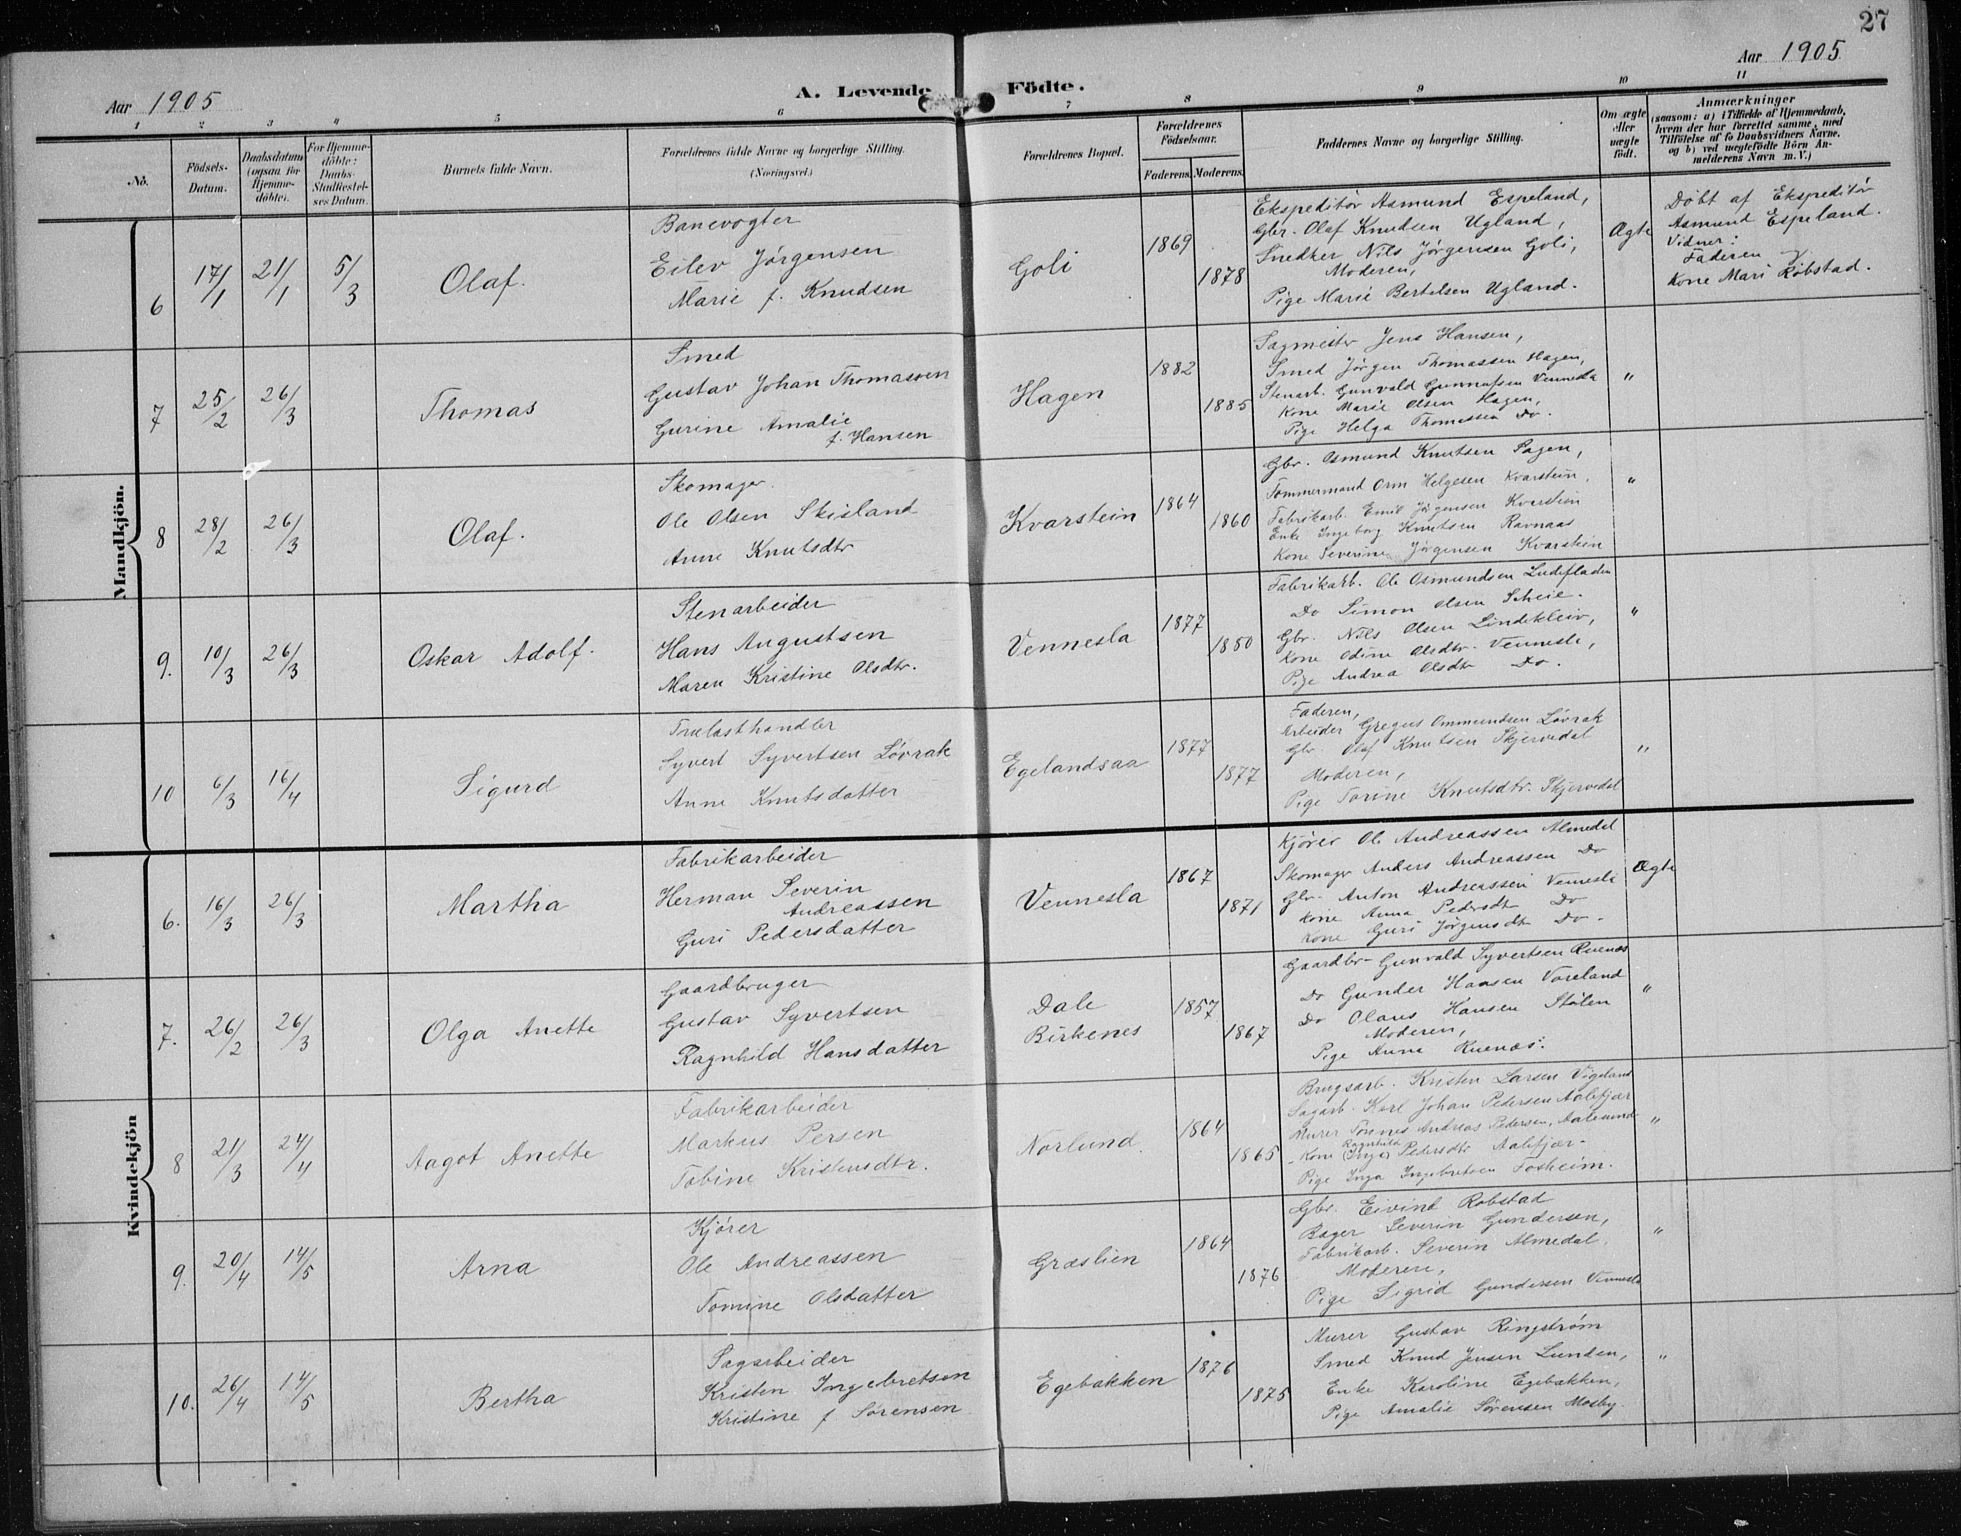 27
Aar 1905
Aar 1905
A. Levende Födte.
1 2 3 4 5 6 7 8 9 10 11
No.
Födsels-
Datum.
Daabsdatum
(ogsaa for
Hjemme-
döbte).
For Hjemme-
döbte:
Daabs-
Stadfæstel-
ses Datum.
Barnets fulde Navn.
Forældrenes fulde Navne og borgerlige Stilling.
(Næringsvei.)
Forældrenes Bopæl.
Forældrenes
Födselsaar.
Faderens. Moderens.
Faddernes Navne og borgerlige Stilling.
Om ægte
eller
uægte
født.
Anmærkninger
(saasom: a) i Tilfælde af Hjemmedaab,
hvem der har forrettet samme, med
Tilföielse af to Daabsvidners Navne,
og b) ved uægtefödte Börn An-
melderens Navn m. V.)
Mandkjön.
6 17/1 21/1 5/3 Olaf.
Banevogter
Eilev Jørgensen
Marie f. Knudsen
Goli
1869
1878
Ekspeditør Asmund Espeland,
Gbr. Olaf Knudsen Ugland,
Snedker Nils Jørgensen Goli,
Moderen,
Pige Marie Bertelsen Ugland.
Ægte
Døbt af Ekspeditør
Asmund Espeland.
Vidner:
Faderen
Kone Mari Røbstad.
7 25/2 26/3 Thomas
Smed
Gustav Johan Thomassen
Gurine Amalie
f. Hansen
Hagen
1882
1885
Sagmester Jens Hansen,
Smed Jørgen Thomassen Hagen,
Stenarb. Gunvald Gunnufsen Vennesla
Kone Marie Olsen Hagen,
Pige Helga Thomassen Do.
"
8 28/2 26/3 Olaf.
Skomager.
Ole Olsen Skisland
Anne Knutsdtr
Kvarstein
1864
1860
Gbr. Osmund Knutsen Sagen,
Tømmermand Orm Helgesen Kvarstein.
Fabrikarb. Emil Jørgensen Kvarstein
Enke Ingeborg Knutsen Ravnaas
Kone Severine Jørgensen Kvarstein
"
9. 10/3 26/3 Oskar Adolf.
Stenarbeider
Hans Augustsen
Maren Kristine Olsdtr.
Vennesla
1877
1880
Fabrikarb. Ole Osmundsen Ludefladen
Do Simon Olsen Scheie.
Gbr. Nils Olsen Lindekleiv,
Kone Odine Olsdtr. Vennesla,
Pige Andrea Olsdtr Do.
"
10 6/3 16/4 Sigurd
Trælasthandler
Syvert Syvertsen Løvrak
Anne Knutsdatter
Egelandsaa
1877
1877
Faderen,
Arbeider Gregus Ommundsen Løvrak
Gbr Olaf Knutsen Skjervedal
Moderen,
Pige Torine Knutsdtr. Skjervedal
"
Kvindekjön
6. 16/3 26/3 Martha
Fabrikarbeider
Herman Severin
Andreassen
Guri Pedersdatter
Vennesla
1867
1871
Kjører Ole Andreassen Almedal
Skomager Anders Andreassen Do
Gbr. Anton Andreassen Vennesla
Kone Anna Pedersdt Do
Kone Guri Jørgensdt Do.
Ægte
7. 26/2 26/3 Olga Anette
Gaardbruger
Gustav Syvertsen
Ragnhild Hansdatter
Dale
Birkenes
1857
1867
Gaardbr- Gunvald Syvertsen Ruenæs
Do Gunder Hansen Voreland
Do Olaus Hansen Stølen
Moderen,
Pige Anna Ruenæs.
"
8 21/3 24/4 Aagot Anette
Fabrikarbeider
Markus Persen
Tobine Kristensdtr.
Norlund.
1864
1865
Brugsarb. Kristen Larsen Vigeland
Sagarb. Karl Johan Pedersen Aalefjær
Murer Andreas Pedersen, Aalesund
Ragnhild
Kone (Inga) Pedersdtr Aalefjær-
Pige Inga Ingebretsen Fosheim.
"
9. 20/4 14/5 Arna
Kjører
Ole Andreassen
Tomine Olsdatter
Græslien
1864
1876
Gbr. Eivind Robstad
Bager Severin Gundersen,
Fabrikarb. Severin Almedal.
Moderen,
Pige Sigrid Gundersen Vennesla
"
10. 26/4 14/5 Bertha
Sagarbeider
Kristen Ingebretsen
Kristine f Sørensen
Egebakken
1876
1875
Murer Gustav Ringstrøm
Smed Knud Jensen Lunden,
Enke Karoline Egebakken,
Pige Amalie Sørensen Mosby.
"